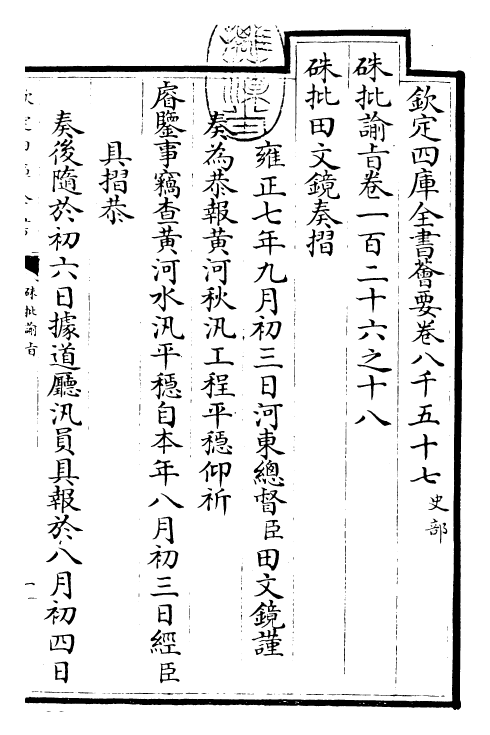 欽定四庫全書薈要卷八千五十七 史部
硃批諭旨卷一百二十六之十八
硃批田文鏡奏摺
雍正七年九月初三日河東總督臣田文鏡謹
奏為恭報黃河秋汛工程平穩仰祈
睿鑒事竊查黃河水汛平穩自本年八月初三日經臣
具摺恭
奏後隨於初六日據道廳汛員具報於八月初四日
硃批諭旨